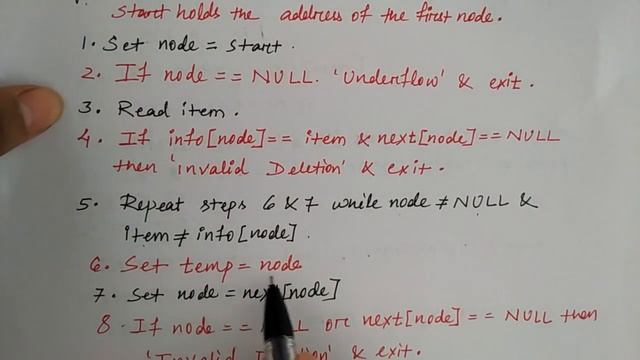 Start holds the address of the first node.
1. Set node = start.
2. If node == NULL. 'Underflow' & exit.
3. Read item.
4. If info[node] == item & next[node] == NULL
then 'invalid Deletion' & exit.
5. Repeat steps 6 & 7 while node ≠ NULL &
item ≠ info[node].
6. Set temp = node
7. Set node = next[node]
8. If node == NULL or next[node] == NULL then
& exit.